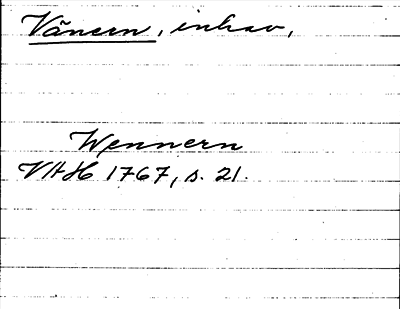 Vänern, inhav,
Wennern
VAH 1767, s. 21.